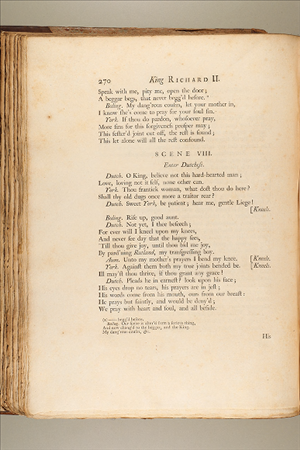 270 King RICHARD II.
Speak with me, pity me, open the door;
A beggar begs, that never begg'd before.
Boling. My dang'rous cousin, let your mother in,
I know she's come to pray for your foul sin.
York. If thou do pardon, whosoever pray,
More sins for this forgiveness prosper may;
This fester'd joint cut off, the rest is sound;
This let alone will all the rest confound.
SCENE VIII.
Enter Dutchess.
Dutch. O King, believe not this hard-hearted man;
Love, loving not it self, none other can.
York. Thou frantick woman, what dost thou do here?
Shall thy old dugs once more a traitor rear?
Dutch. Sweet York, be patient; hear me, gentle Liege!
[Kneels.
Boling. Rise up, good aunt.
Dutch. Not yet, I thee beseech;
For ever will I kneel upon my knees,
And never see day that the happy sees,
'Till thou give joy, until thou bid me joy,
By pard'ning Rutland, my transgressing boy.
Aum. Unto my mother's prayers I bend my knee. [Kneels.
York. Against them both my true joints bended be. [Kneels.
Ill may'st thou thrive, if thou grant any grace!
Dutch. Pleads he in earnest? look upon his face;
His eyes drop no tears, his prayers are in jest;
His words come from his mouth, ours from our breast:
He prays but faintly, and would be deny'd;
We pray with heart and soul, and all beside.
begg'd before.
Boling. Our scene is alter'd from a serious thing,
And now chang'd to the beggar, and the King.
My dang'rous cousin, &c.
His